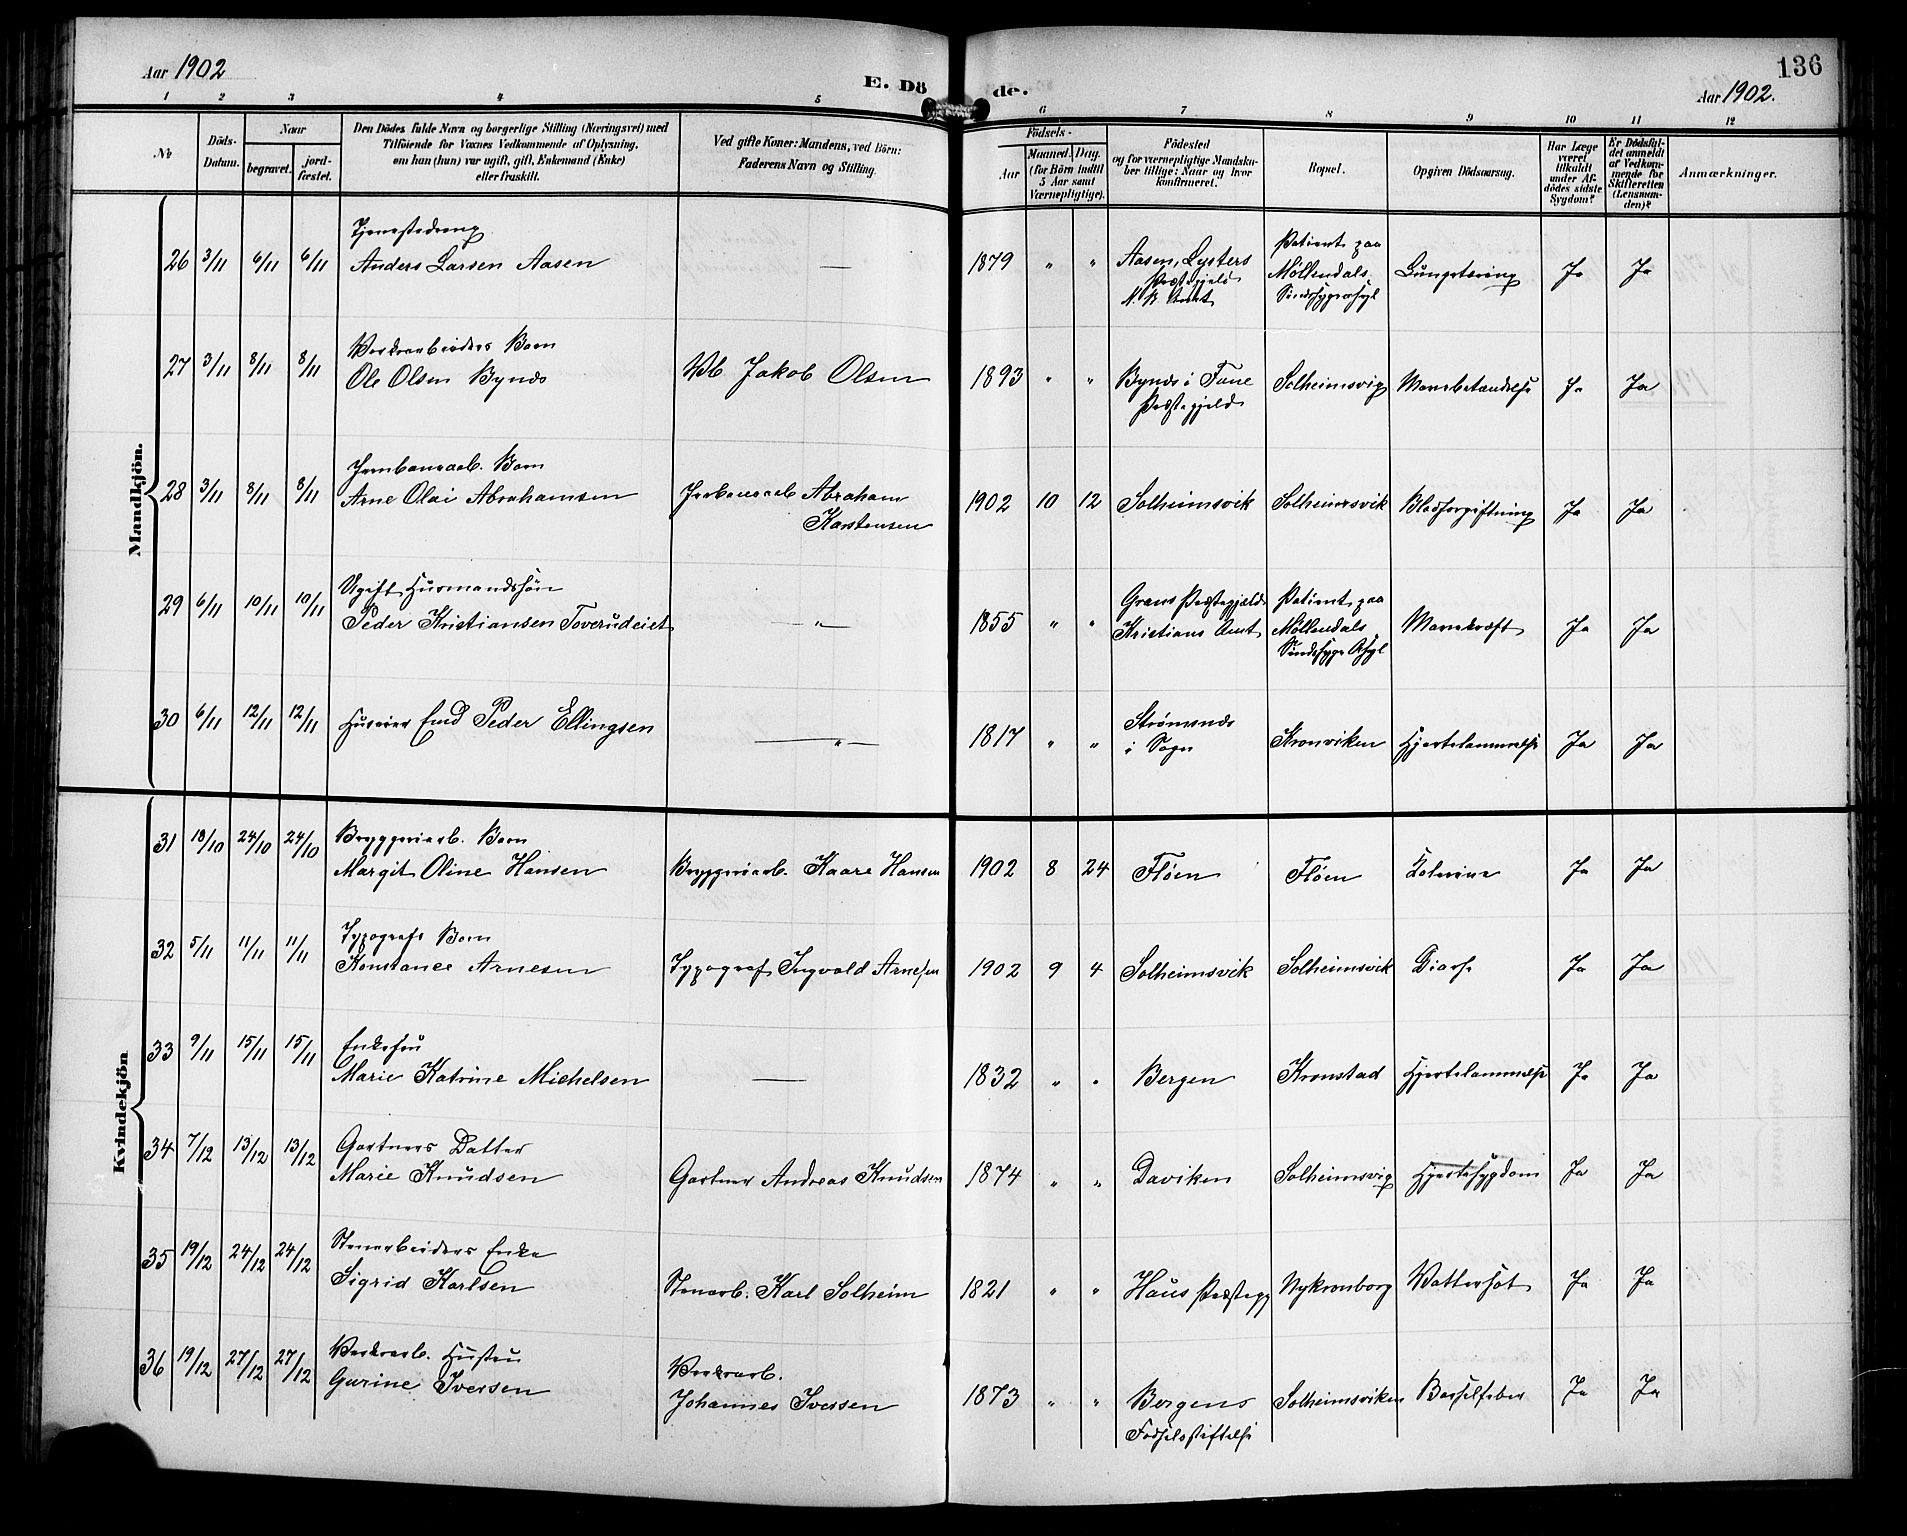 Aar 1902
E. Dö
de.
136
Aar 1902.
1 2 3 4 5 6 7 8 9 10 11 12
No
Döds-
Datum.
Naar
begravet.
jord-
fæstet.
Den Dödes fulde Navn og borgerlige Stilling (Næringsvei) med
Tilföiende for Voxnes Vedkommende af Oplysning,
om han (hun) var ugift, gift, Enkemand (Enke)
eller fraskilt.
Ved gifte Koner: Mandens, ved Börn:
Faderens Navn og Stilling.
Födsels-
Aar
Maaned. Dag.
(for Börn indtil
5 Aar samt
Værnepligtige).
Födested
og for værnepligtige Mandska-
ber tillige: Naar og hvor
konfirmeret.
Bopæl.
Opgiven Dödsaarsag.
Har Læge
været
tilkaldt
under Af-
dödes sidste
Sygdom?
Er Dödsfal-
det anmeldt
af Vedkom-
mende for
Skifteretten
(Lensman-
den)?
Anmærkninger.
Mandkjön.
Tjenestedreng
26 3/11 6/11 6/11 Anders Larsen Aasen —
1879 " " Aasen, Lysters
Præstegjeld
N. B. Amt
Patient paa
Møllendals
Sindssygeasyl
Lungetæring Ja Ja
Værksarbeiders Barn
27 3/11 8/11 8/11 Ole Olsen Byndes Vb. Jakob Olsen
1893 " " Byndes i Fane
Præstegjeld
Solheimsvig Mavebetændelse Ja Ja
Jernbanearb. Barn
28 3/11 8/11 8/11 Arne Olai Abrahamsen Jernbanearb. Abraham
Karstensen
1902 10 12 Solheimsvik Solheimsvik Blodforgiftning Ja Ja
Ugift Husmandssön
29 6/11 10/11 10/11 Peder Kristiansen Toverudeiet "
1855 " " Grans Præstegjæld
Kristians Amt
Patient paa
Møllendals
Sindssyge Asyl
Mavekræft Ja Ja
30 6/11 12/11 12/11 Huseier Emd Peder Ellingsen "
1817 " " Strømsnes
i Sogn
Kronviken Hjertelammelse Ja Ja
Kvindekjön
Bryggeriarb. Barn
31 18/10 24/10 24/10 Margit Oline Hansen Bryggeriarb. Kaare Hansen
1902 8 24 Fløen Fløen Kolerine Ja Ja
Typografs Barn
32 5/11 11/11 11/11 Konstance Arnesen Typograf Ingvald Arnesen
1902 9 4 Solheimsvik Solheimsvik Diarre Ja Ja
Enkefru
33 9/11 15/11 15/11 Marie Katrine Michelsen —
1832 " " Bergen Kronstad Hjertelammelse Ja Ja
Gartners Datter
34 7/12 13/12 13/12 Marie Knudsen Gartner Andreas Knudsen
1874 " " Daviken Solheimsvig Hjertesygdom Ja Ja
Stenarbeiders Enke
35 19/12 24/12 24/12 Sigrid Karlsen Stenarb. Karl Solheim
1821 " " Haus Præstegj Nykronborg Vattersot Ja Ja
Værksarb. Hustru
36 19/12 27/12 27/12 Gurine Iversen Værksarb.
Johannes Iversen
1873 " " Bergens
Fødselsstiftelse
Solheimsviken Barselfeber Ja Ja